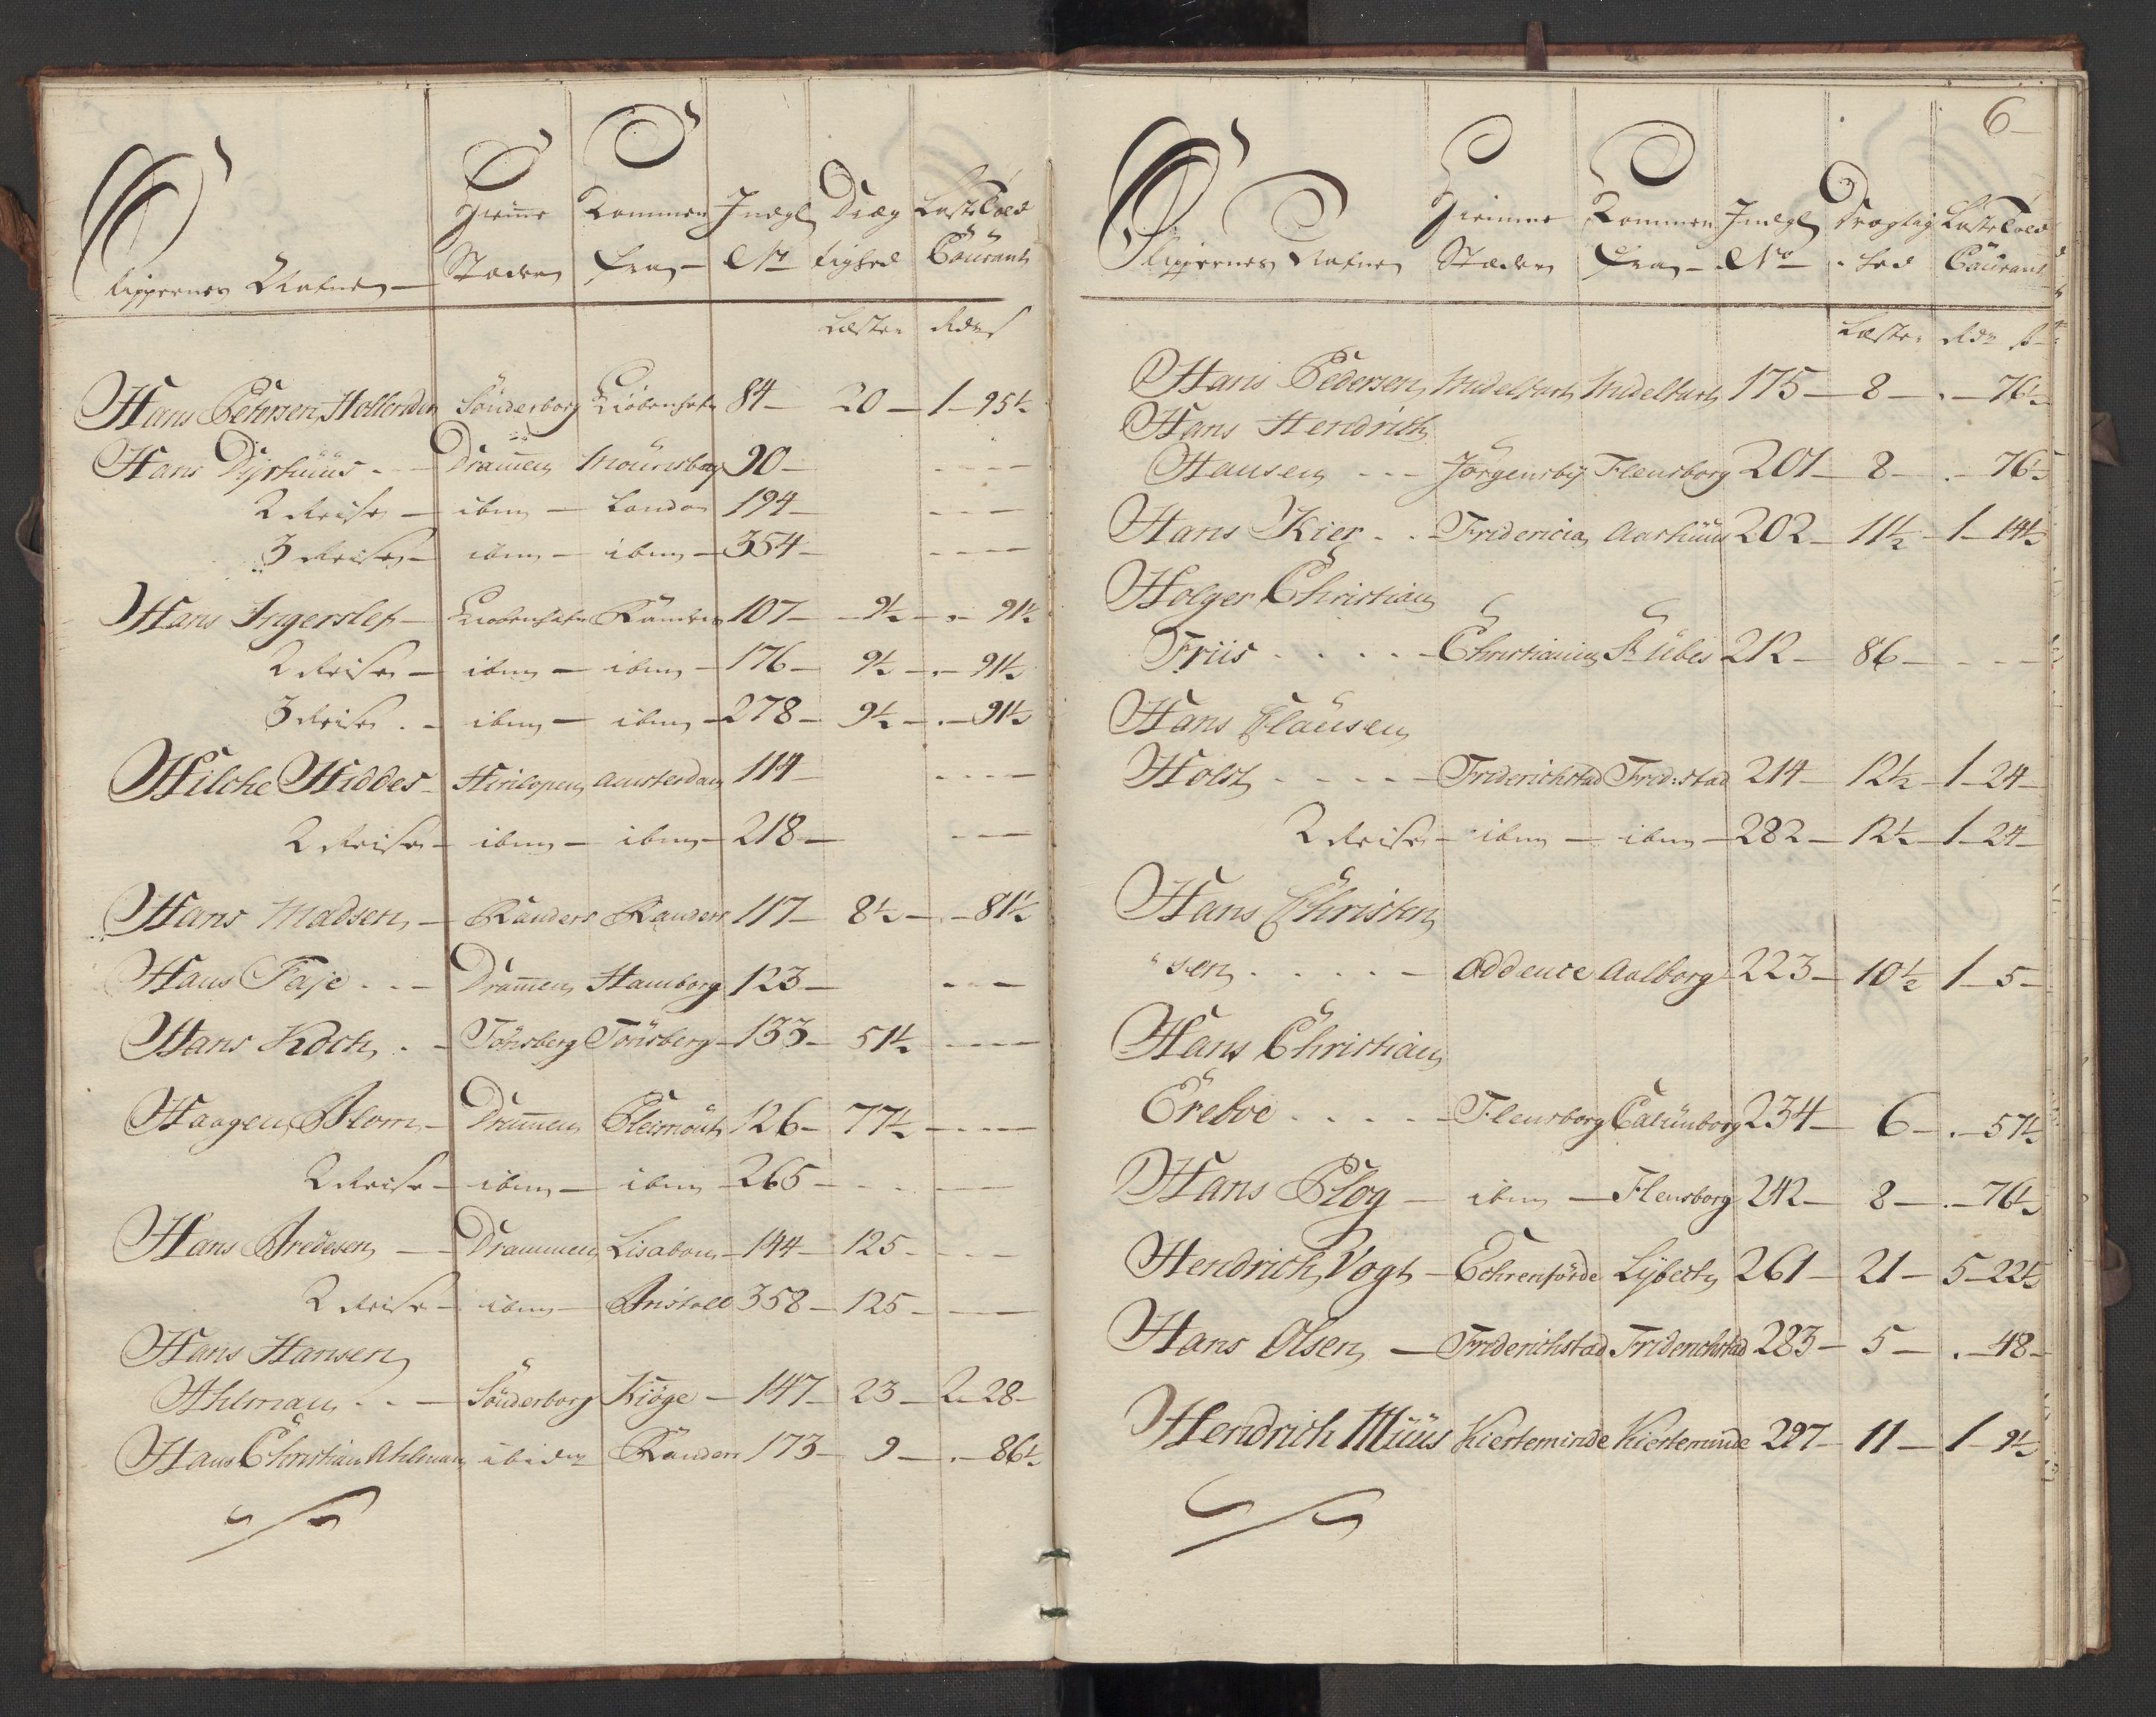 Skippernes Nafne Hiemme Steder Kommen Fra Indgl No Dræg tighed Læste Told Courant
Læster Rdr s
Hans Petersen Hollender Sönderborg Kiöbenhafn 84 20 1 95½
Hans Dyrhuus Drammen 90
2 Reise ibm London 194
3 Reise ibm ibm 354
Hans Ingerslef Kiobenhafn Randers 107 9½ 91½
2 Reise ibm ibm 176 9½ 91½
3 Reise ibm ibm 278 9½ 91½
Hilche Hiddes Hinlopen Amsterdam 114
2 Reise ibm ibm 218
Hans Madsen Randers Randers 117 8½ 81½
Hans Faje Drammen Hamborg 123
Hans Koch Tönsberg Tönsberg 133 51½
Haagen Blom Drammen Pleimouth 126 77½
2 Reise ibm ibm 265
Hans Bredesen Drammen Lisabon 144 125
2 Reise ibm Bristoll 358 125
Hans Hansen
Ahlman Sönderborg Kiöge 147 23 2 28
Hans Christian Ahlman ibidm Randers 173 9 86½
6
Skippernes Nafne Hiemme Steder Kommen Fra Indgl No Drægtig hed Læste Told Courant
Læster Rdr s
Hans Pedersen Midelfart Midelfart 175 8 76½
Hans Hendrich
Hansen Jörgensby Flensborg 201 8 76½
Hans Kier Fridericia Aarhuus 202 11½ 1 14½
Holger Christian
Friis Christiania St Ubes 212 86
Hans Clausen
Holst Friderichstad Frid:stad 214 12½ 1 24
2 Reise ibm ibm 282 12½ 1 24
Hans Christen
sen Oddence Aalborg 223 10½ 1 5
Hans Christian
Ereboe Flensborg Calunborg 234 6 57½
Hans Plog ibm Flensborg 242 8 76½
Hendrich Vogt Echrenförde Lybech 261 21 5 22½
Hans Olsen Friderichstad Friderichstad 283 5 48
Hendrich Muus Kierteminde Kierteminde 297 11 1 9½